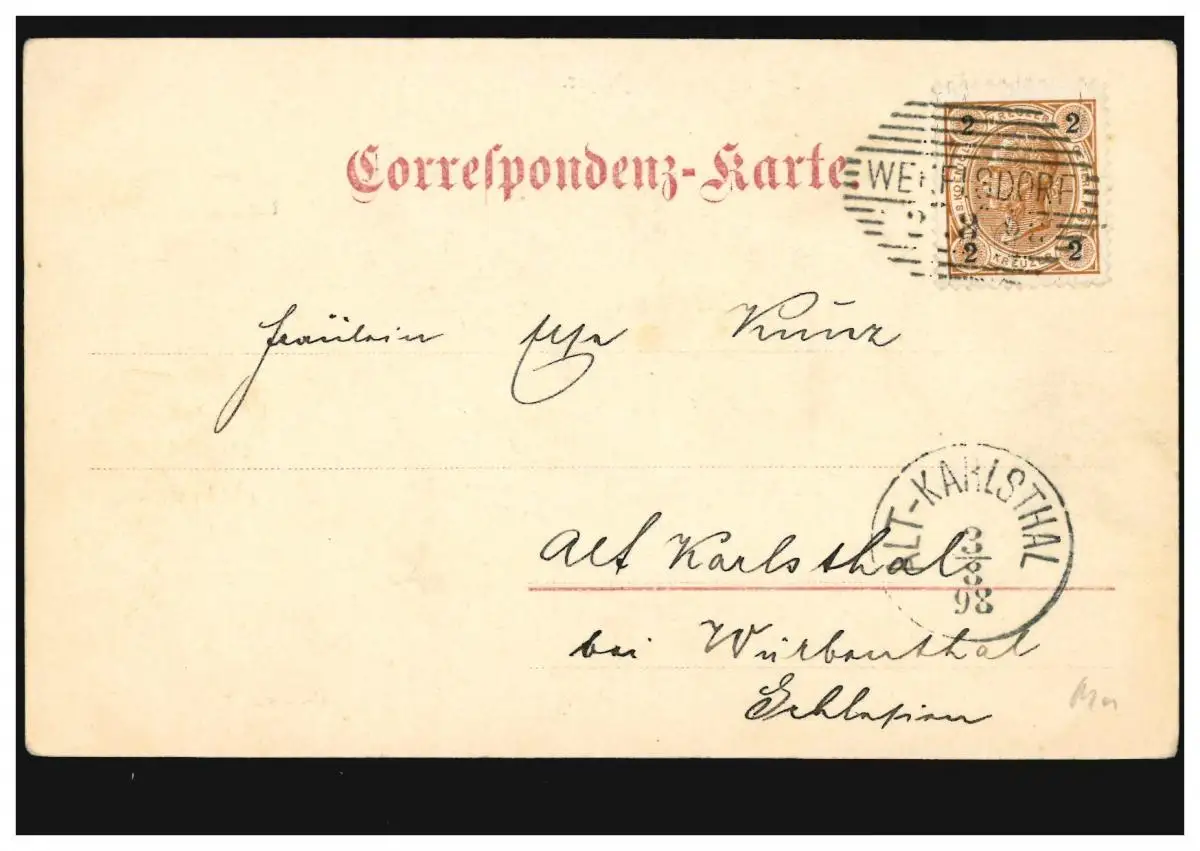 Correspondenz-Karte.
WEK SDORF
2 2
KREUZER
2 2
KREUZER
Fräulein Kunz
ALT-KARLSTHAL
3
8
98
Alt Karlsthal
bei Würbenthal
Schlesien